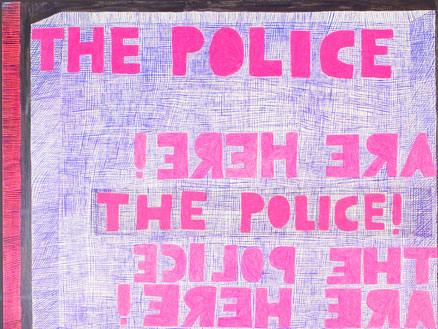 THE POLICE
ARE HERE!
THE POLICE!
THE POLICE
ARE HERE!